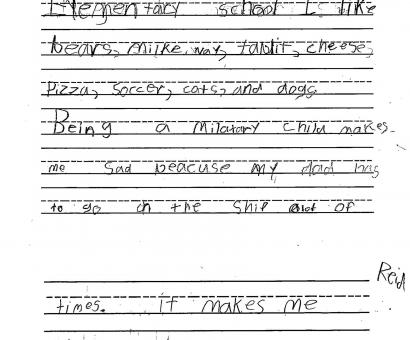 Elementary school I like
bears, milke way, tablit, cheese,
Pizza, soccer, cats, and dogs
Being a Milatary child makes
me sad beacuse my dad has
to go on the ship alot of
Reid
times. it makes me